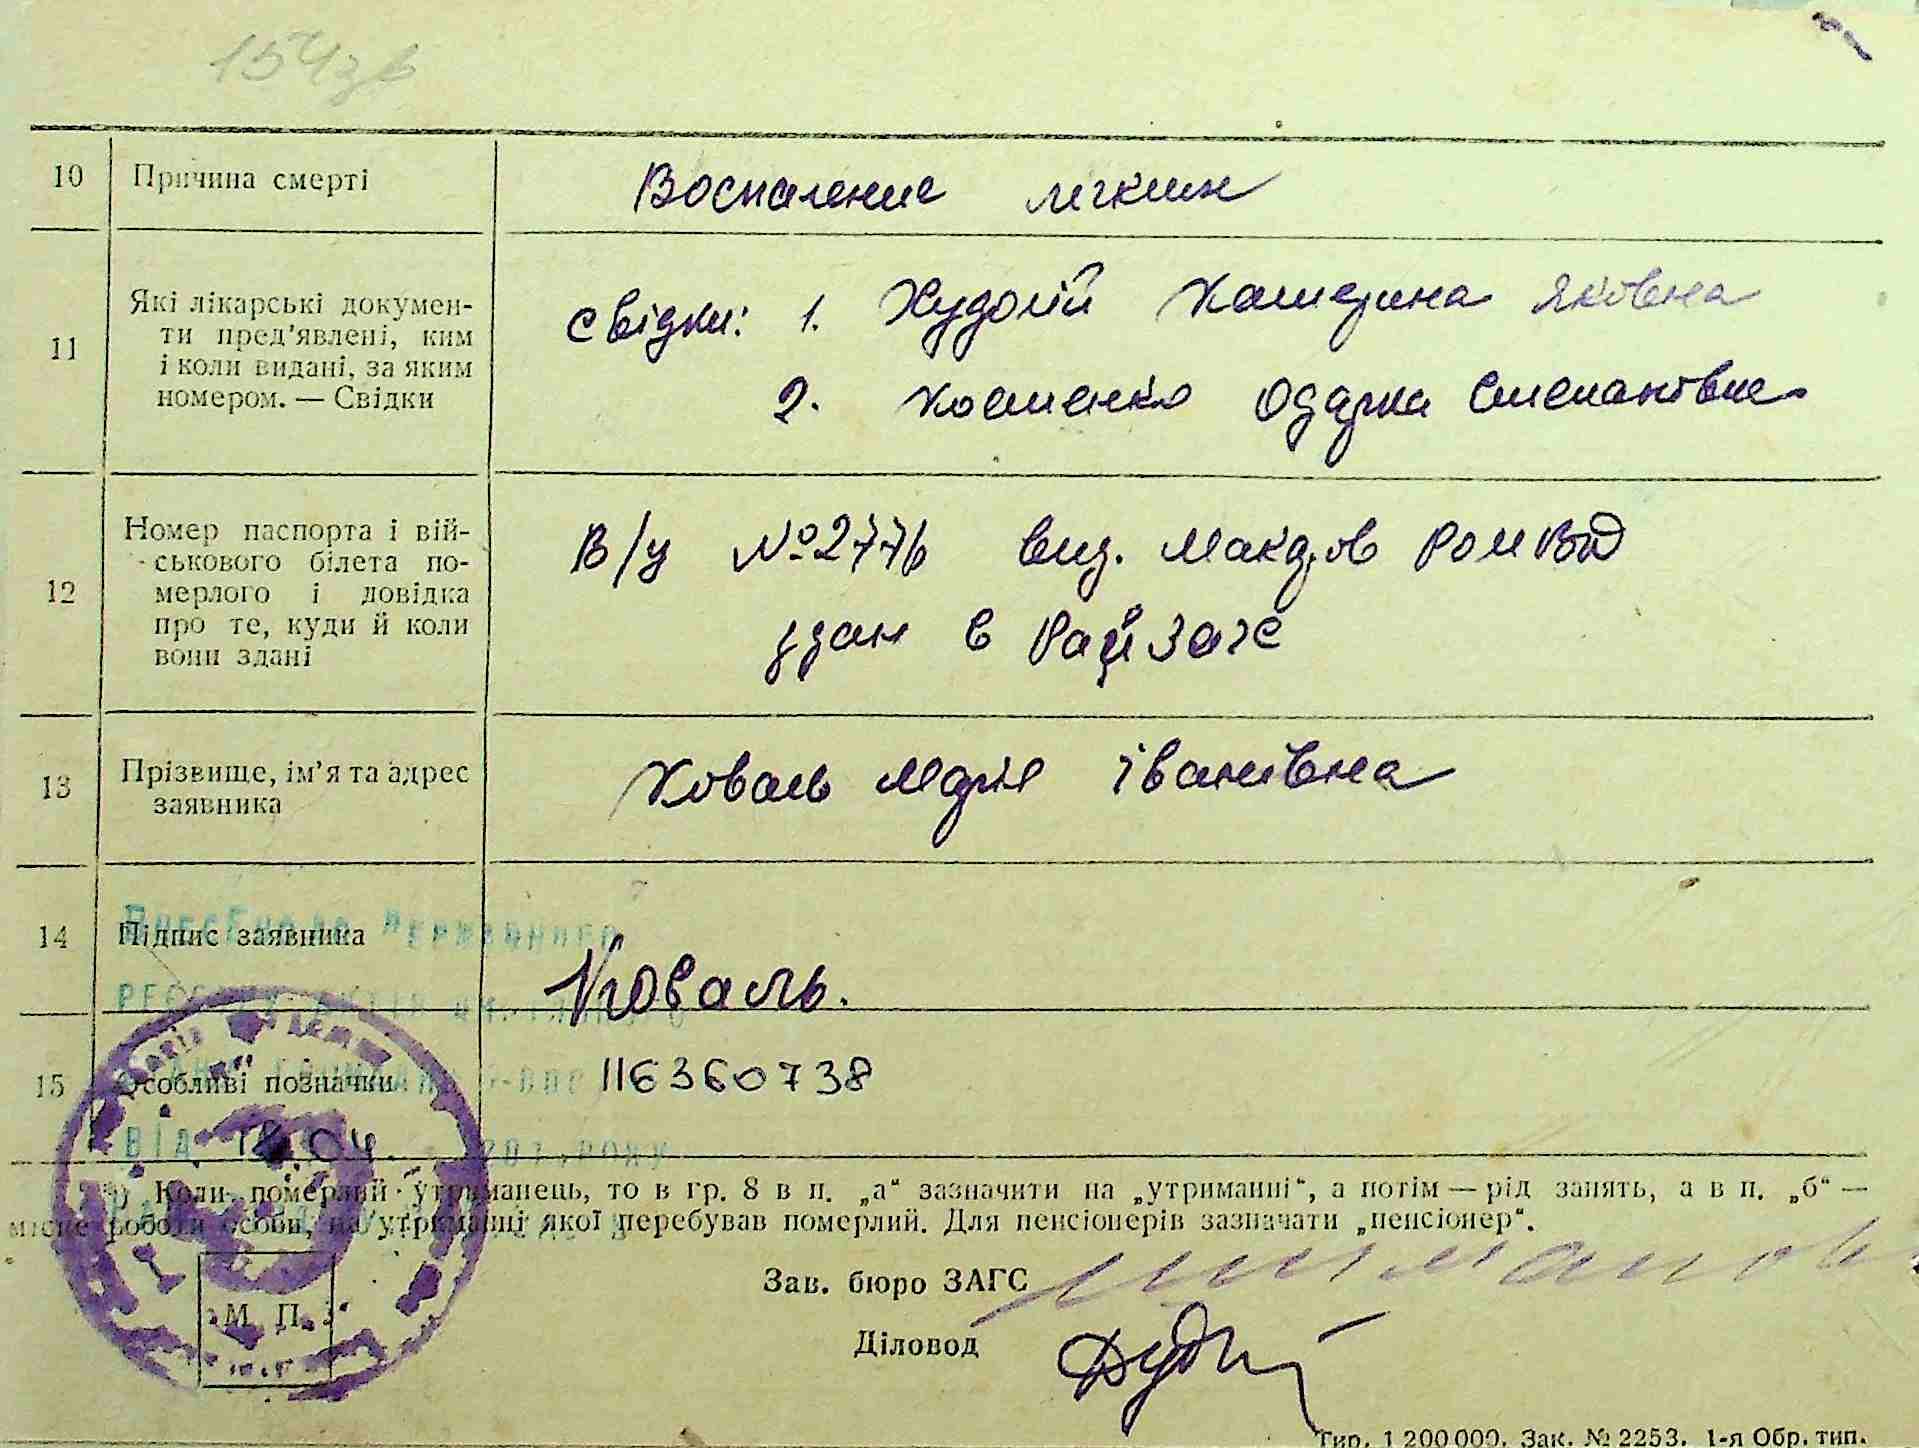 154зв
10 Причина смерті Воспаление легких
11 Які лікарські докумен-
ти пред'явлені, ким
і коли видані, за яким
номером. — Свідки
Свідки: 1. Худолій Катерина Яковна
2. Костенко Одарка Степановна
12 Номер паспорта і вій-
ськового білета по-
мерлого і довідка
про те, куди й коли
вони здані
В/у №2776 вид.
здан в РайЗагс
13 Прізвище, ім'я та адрес
заявника
Коваль Марія Іванівна
14 Підпис заявника Коваль.
15 Особливі позначки 116360738
Внесено до Державного
ВІД 04. 201 .РОКУ
¹) Коли померлий утриманець, то в гр. 8 в п. „а“ зазначити на „утриманні“, а потім — рід занять, а в п. „б“ —
місце роботи особи, на утриманці якої перебував померлий. Для пенсіонерів зазначати „пенсіонер“.
Зав. бюро ЗАГС
М. П.
Діловод
Тир. 1 200 000. Зак. № 2253. 1-я Обр. тип.